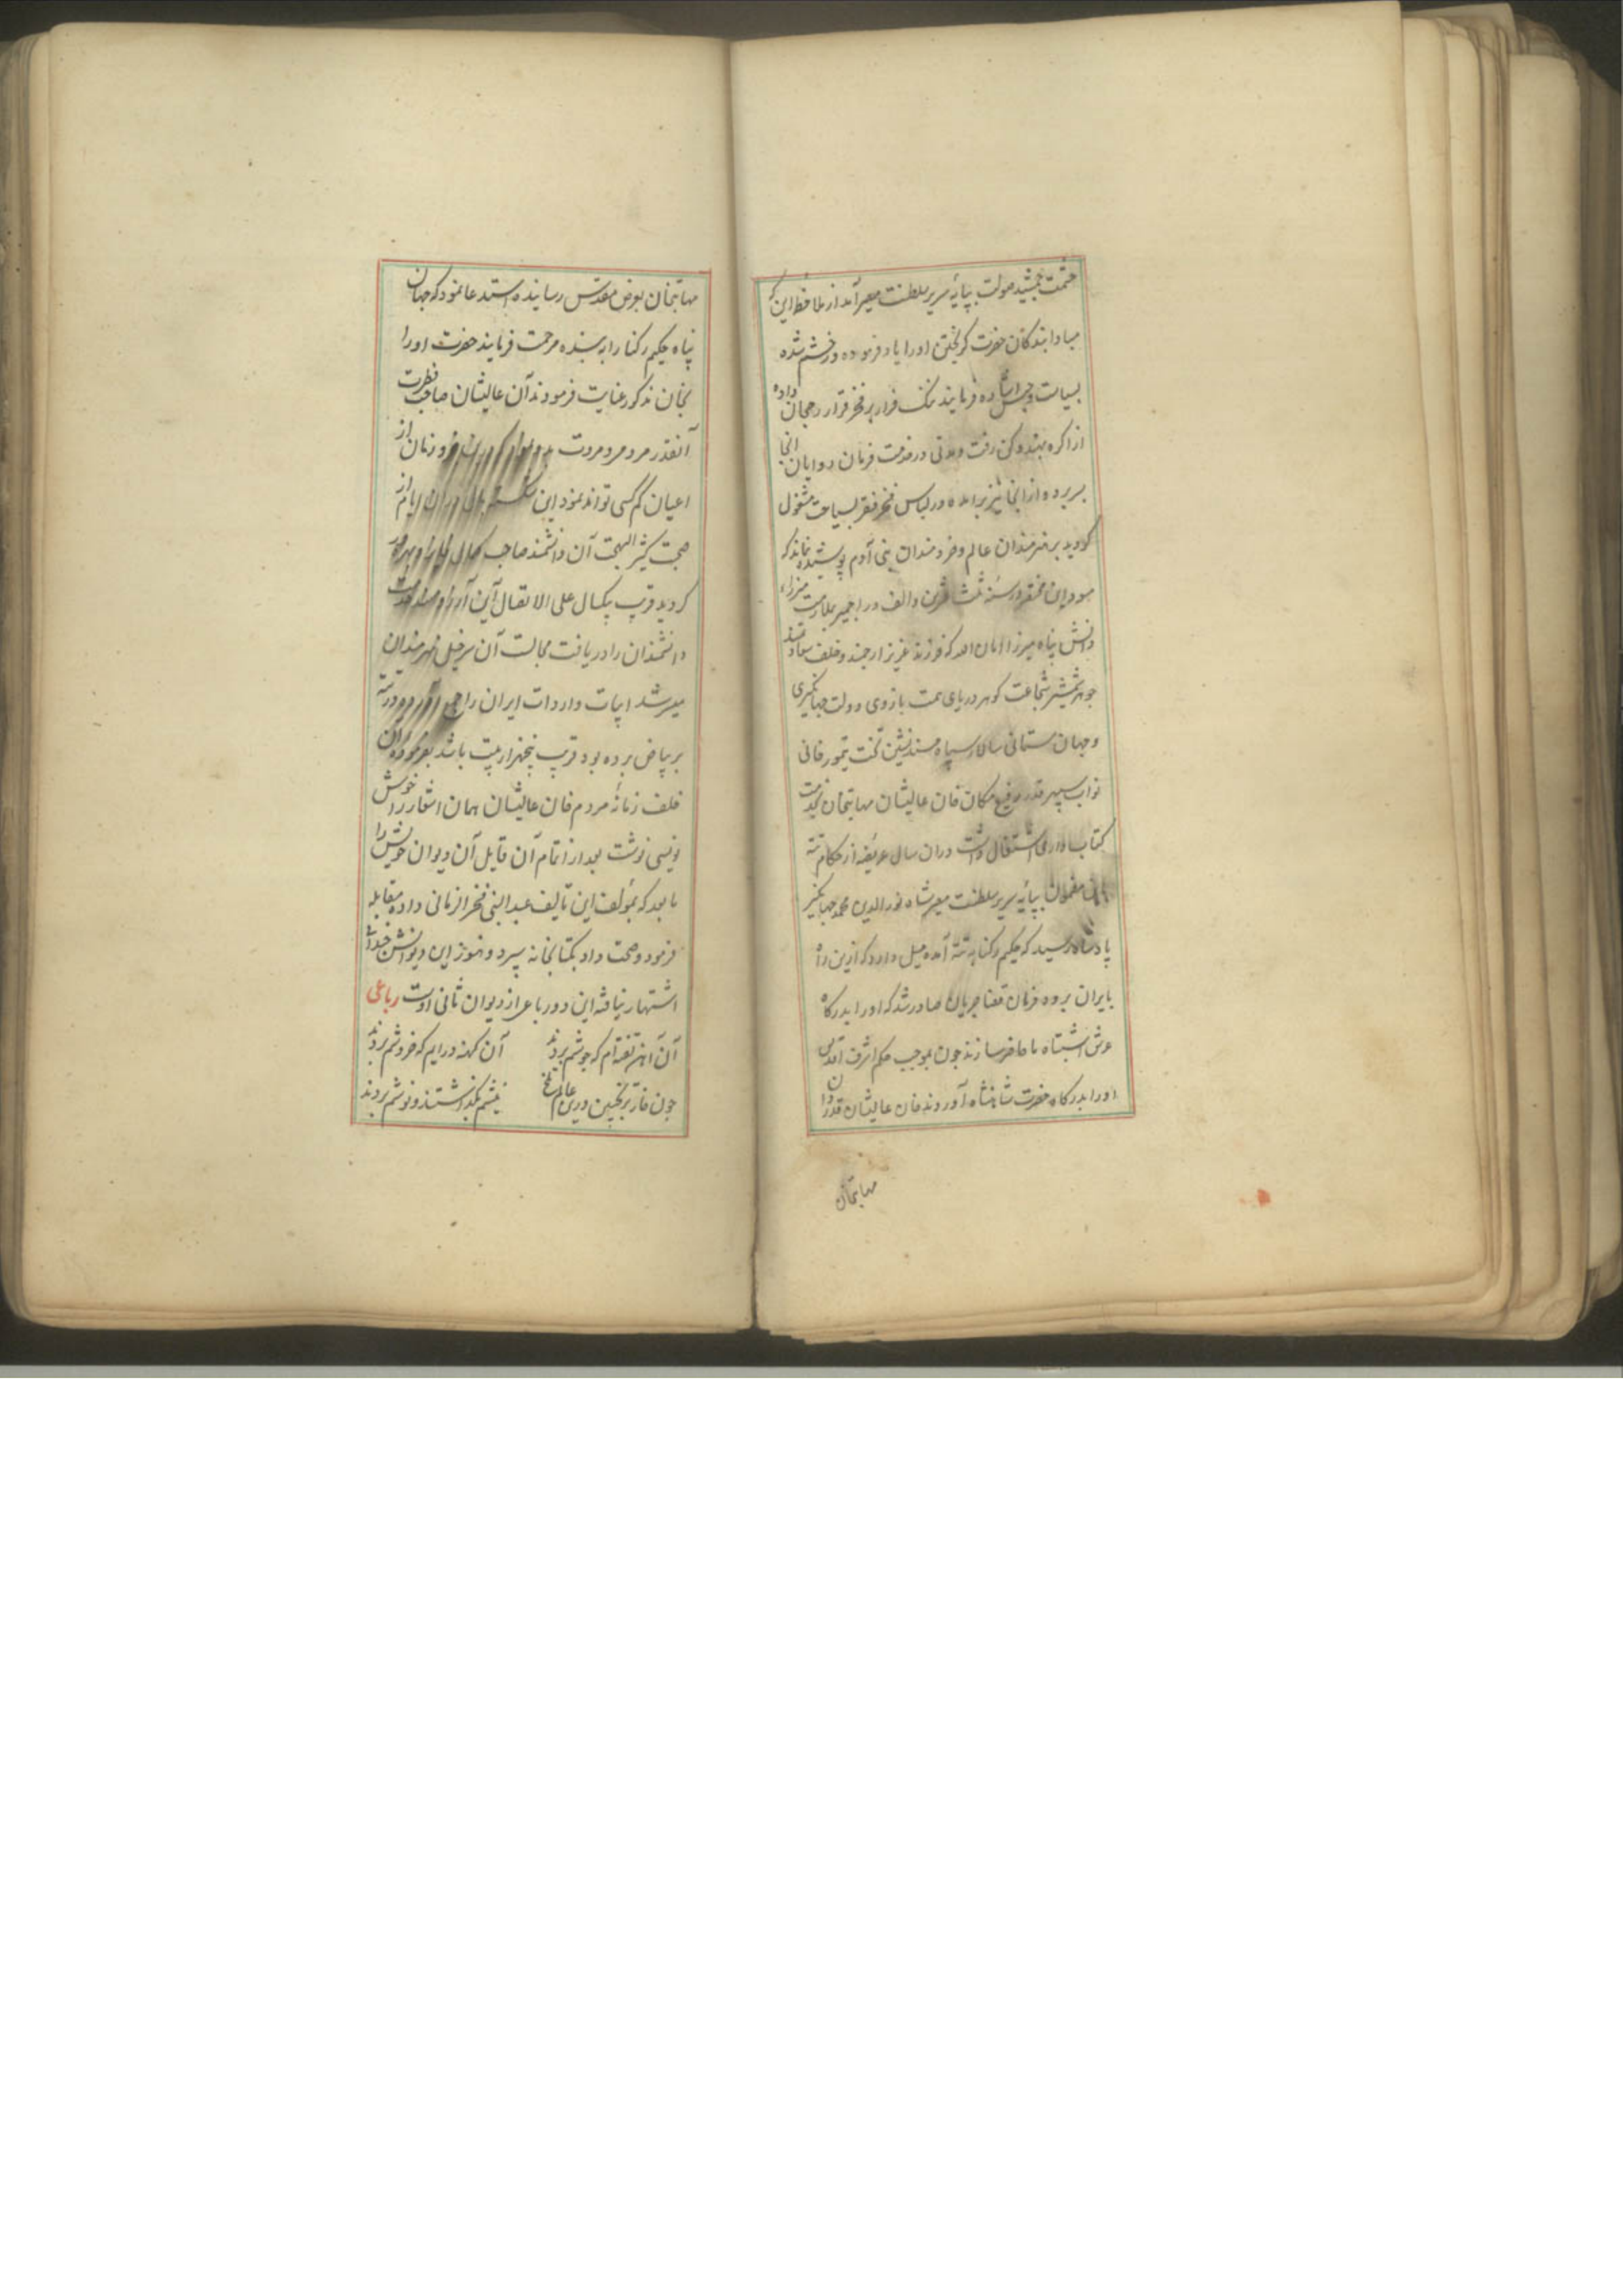 حشمت جمشید صولت بپایهٔ سریر سلطنت مصیر آمد از ملاحظه این که
مبادا بندکان حضرت کریختن اورا یاد فرموده در خشم شده
بسیاست و حبس فرمایند ننک فرار بر فخر قرار رجحان داده
از اکره بهند دکن رفت و مدتی در خدمت فرمان روایان انجا
بسر برده از انجا نیز برامده در لباس فخر فقر بسیاحت مشغول
کردید بر هنرمندان عالم و خردمندان بنی آدم پوشیده نماند که
مسود این مختصر در سنه ثلث عشرین و الف در اجمیر بملازمت میرزاء
دانش پناه میرزا امان الله که فرزند عزیز ارجمند و خلف سعادتمند
جوهر شمشیر شجاعت کوهر دریای همت بازوی دولت جهانکیری
و جهان ستانی سالار سپاه مسند نشین تخت تیمور خانی
نواب سپهر قدر رفیع مکان خان عالیشان مهابتخان بخدمت
کتاب داری اشتغال داشت دران سال عریضه از حکام تته
باین مضمون بپایهٔ سریر سلطنت مصیر شاه نور الدین محمد جهانکیر
پادشاه رسید که حکیم رکنا به تته آمده میل دارد که ازین راه
بایران برود فرمان قضا جریان صادر شد که اورا بدرکاه
عرش اشتباه ما حاضر سازند چون بموجب حکم اشرف اقدس
اورا بدرکاه حضرت شاهنشاه آوردند خان عالیشان قدردان
مهابتخان
مهابتخان بعرض مقدس رسانیده استدعا نمود که جهان
پناه حکیم رکنا را به بنده مرحمت فرمایند حضرت اورا
بخان مذکور عنایت فرمودند آن عالیشان صاحب فطرت
آنقدر مردمی و مروت زمان از
اعیان کم کسی تواند نمود این ایام از
صحبت کثیر البهجت آن دانشمند صاحب کمال
کردید قریب یکسال علی الاتصال این
دانشمندان را دریافت مجالست آن سرخیل هنرمندان
میسر شد ابیات واردات ایران را
بر بیاض برده بود قریب پنجهزار بیت باشد بفرموده آن
خلف زمانهٔ مردم خان عالیشان همان اشعار را خوش
نویسی نوشت بعد از اتمام آن قایل آن دیوان خویش را
مابعد که بمؤلف این تالیف عبد النبی فخر الزمانی داده مقابله
فرمود و صحت داد بکتابخانه سپرد و هنوز این دیوانش چندان
اشتهار نیافته این دو رباعی از دیوان ثانی اوست رباعی
آن آهن تفته ام که جوشم بردند آن کهنه درایم که خروشم بردند
چون خار ترنجبین درین عالم تلخ نیشم بکذاشتند و نوشم بردند